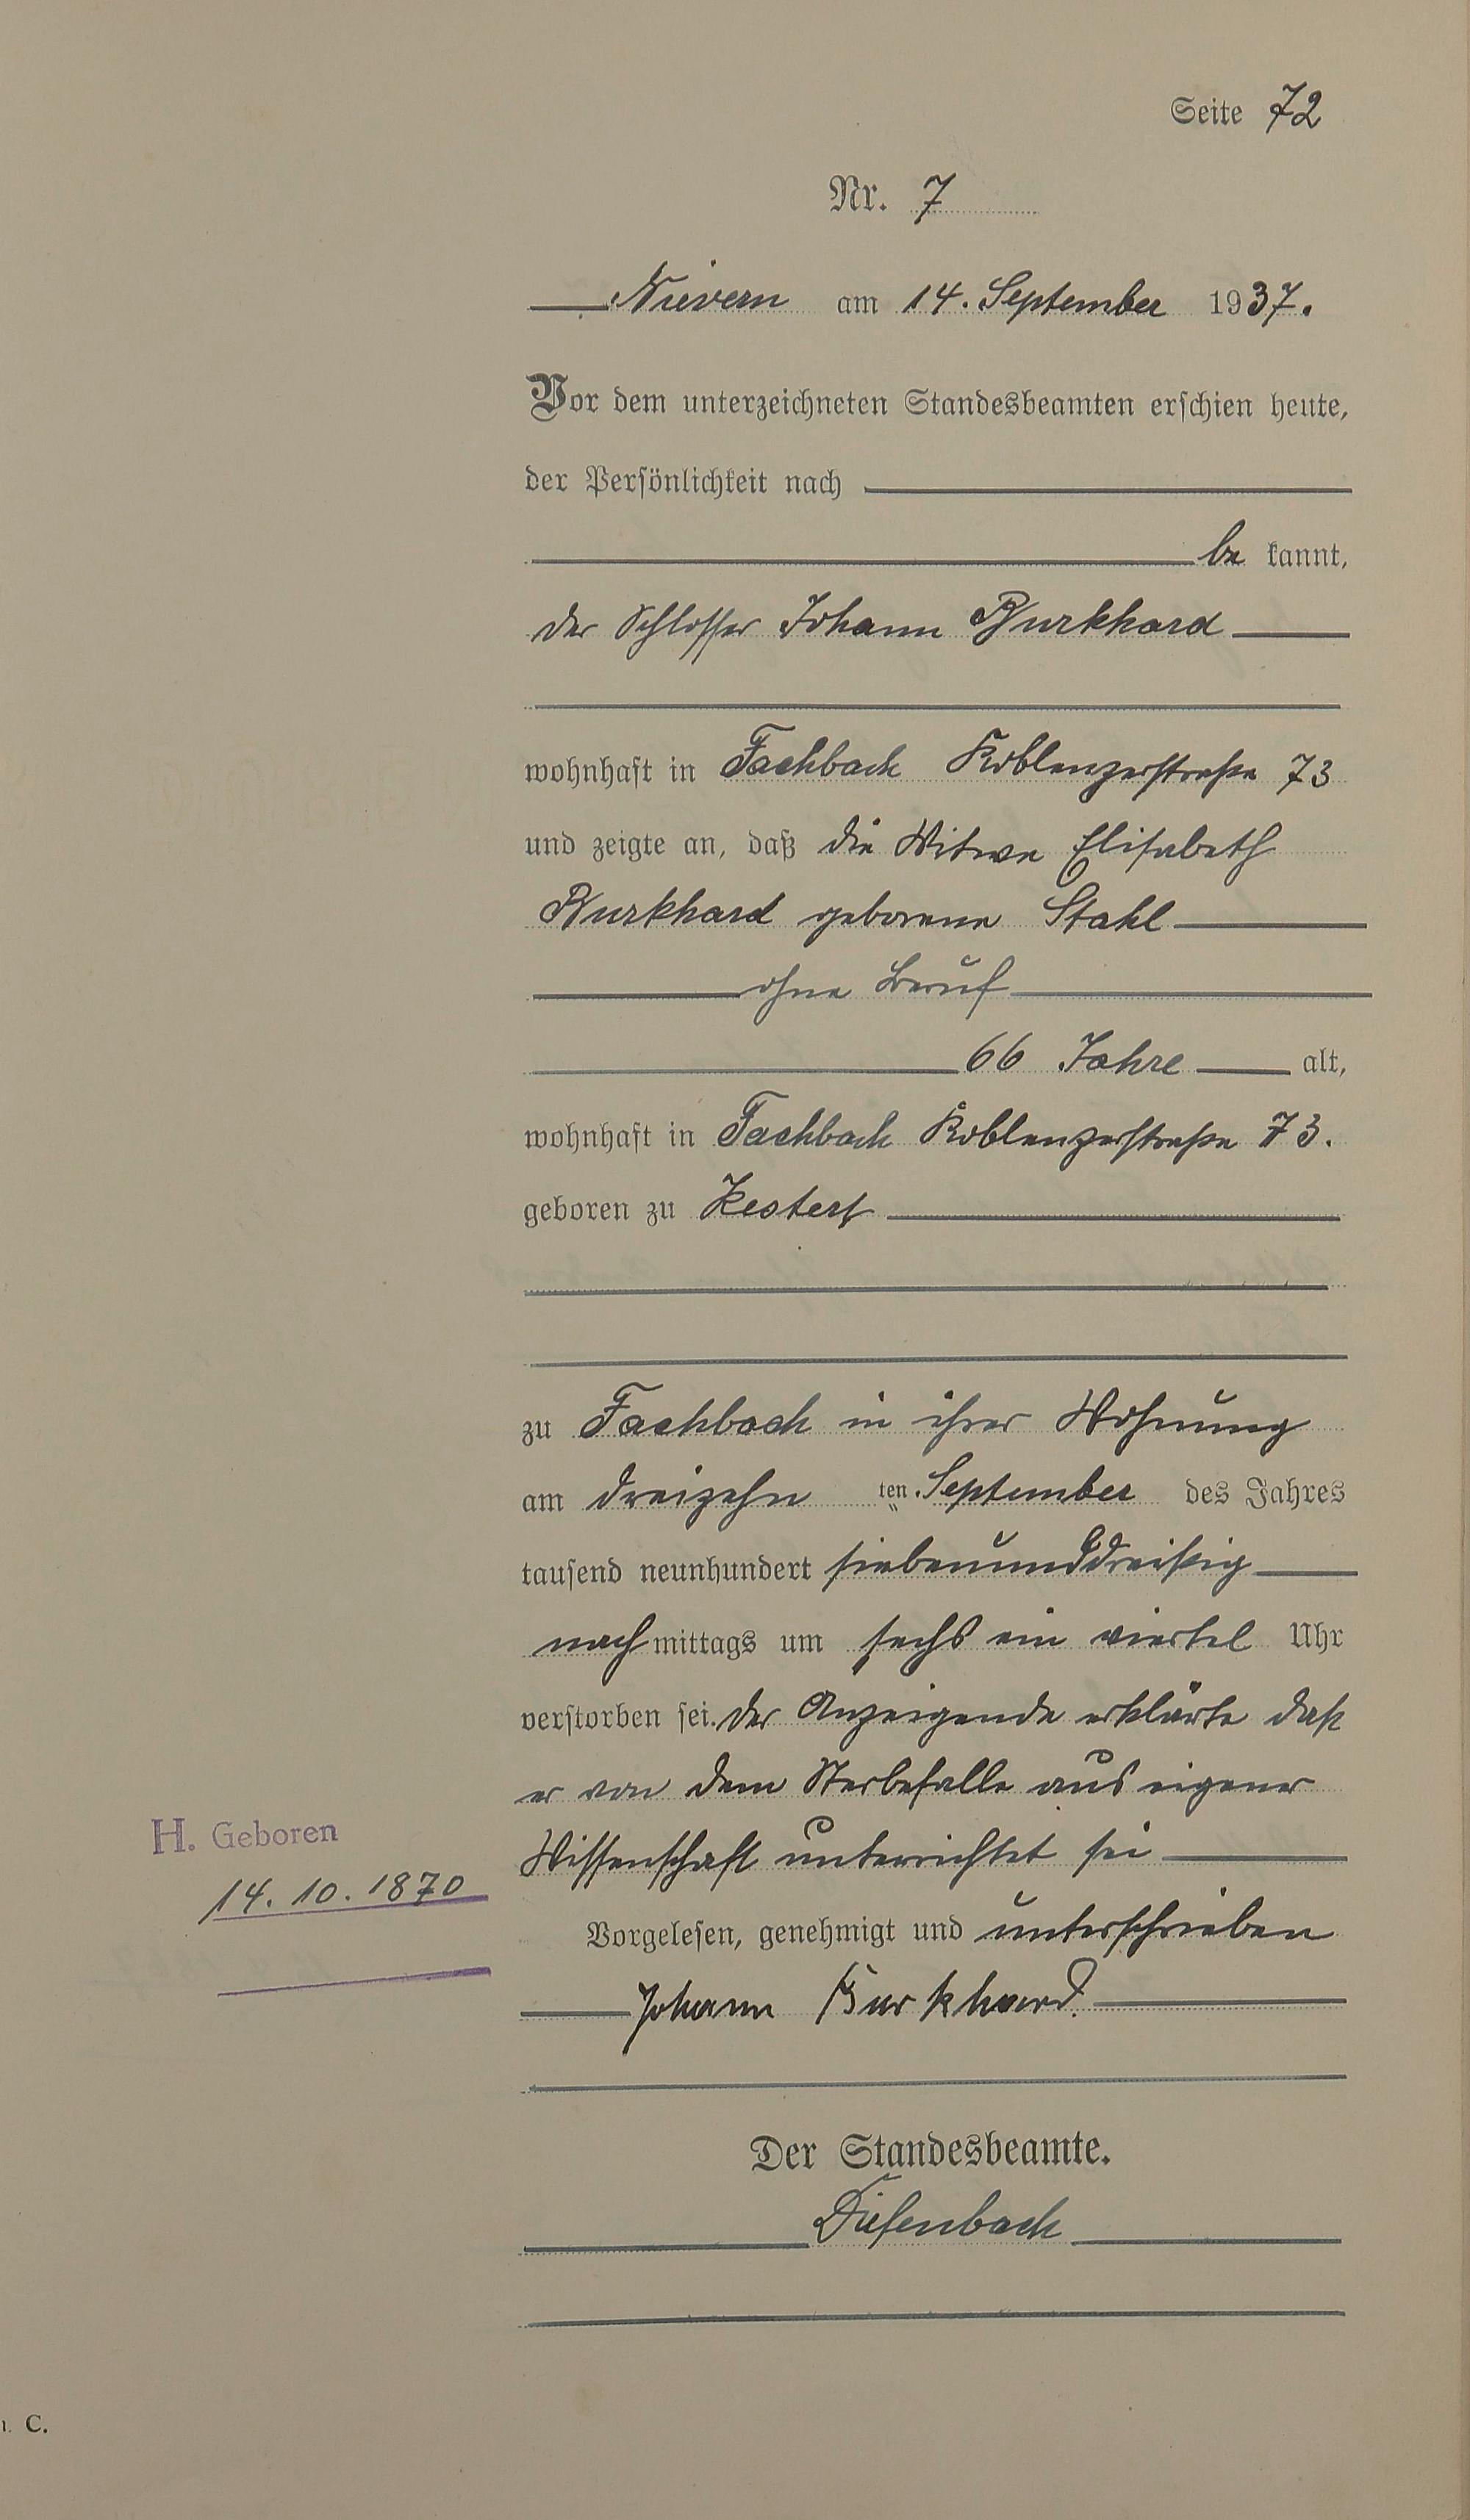 Seite 72
Nr. 7
Nievern am 14. September 1937.
Vor dem unterzeichneten Standesbeamten erschien heute,
der Persönlichkeit nach
be kannt,
der Schlosser Johann Burkhard
wohnhaft in Fachbach Koblenzerstraße 73
und zeigte an, daß die Witwe Elisabeth
Burkhard geborene Stahl
ohne Beruf
66 Jahre alt,
wohnhaft in Fachbach Koblenzerstraße 73.
geboren zu Kestert
zu Fachbach in ihrer Wohnung
am dreizehn ten September des Jahres
tausend neunhundert siebenunddreißig
nachmittags um sechs ein viertel Uhr
verstorben sei. Der Anzeigende erklärte daß
er von dem Sterbefalle aus eigener
Wissenschaft unterrichtet sei
H. Geboren
14. 10. 1870
Vorgelesen, genehmigt und unterschrieben
Johann Burkhard.
Der Standesbeamte.
Diefenbach
C.